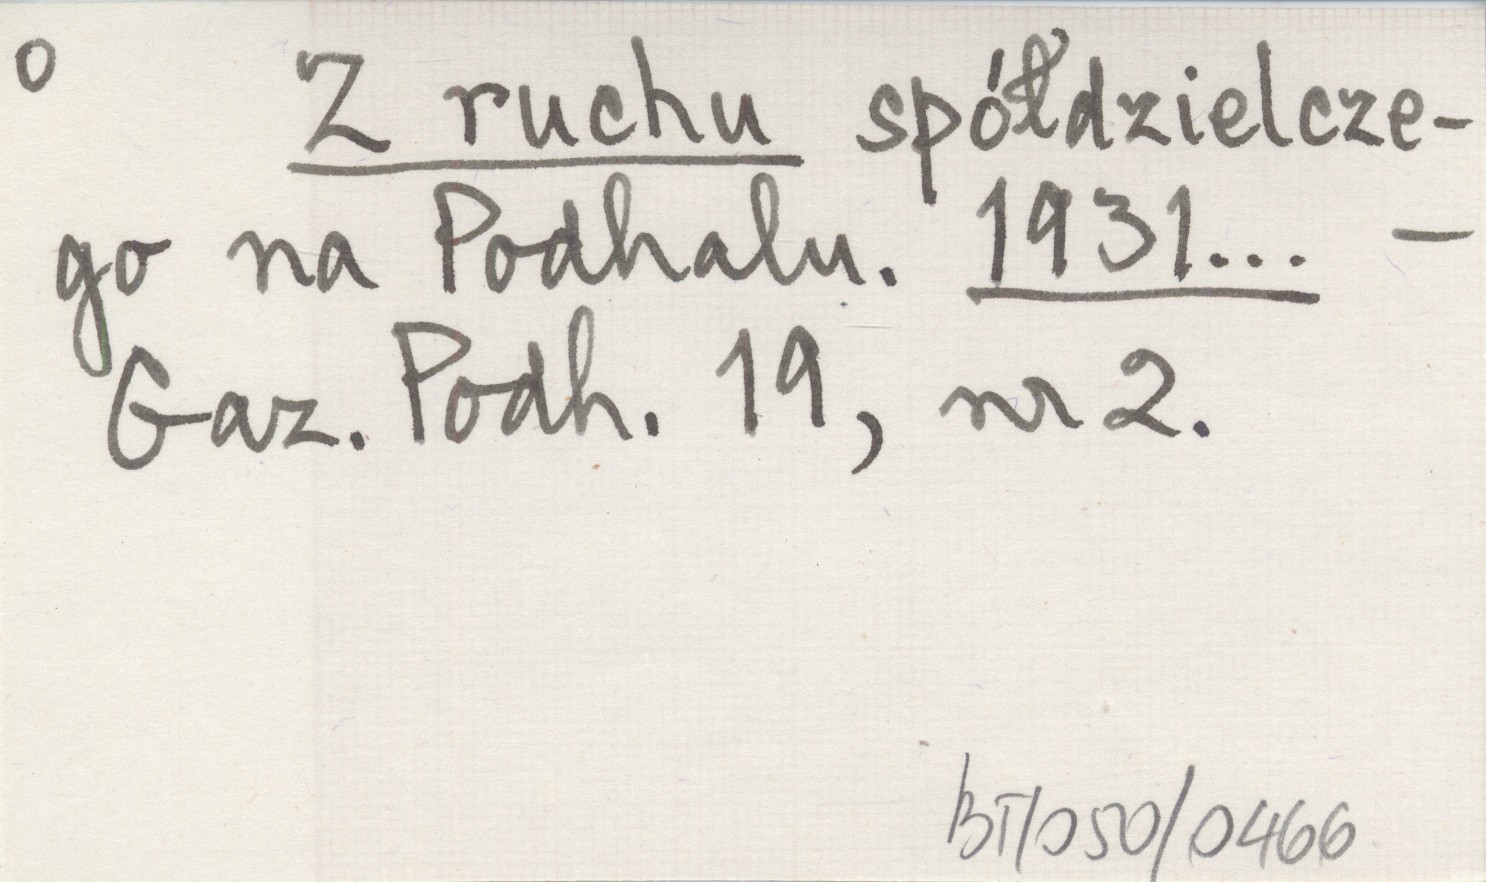 o Z ruchu spółdzielcze-
go na Podhalu. 1931... -
Gaz. Podh. 19, nr 2.
BT/050/0466